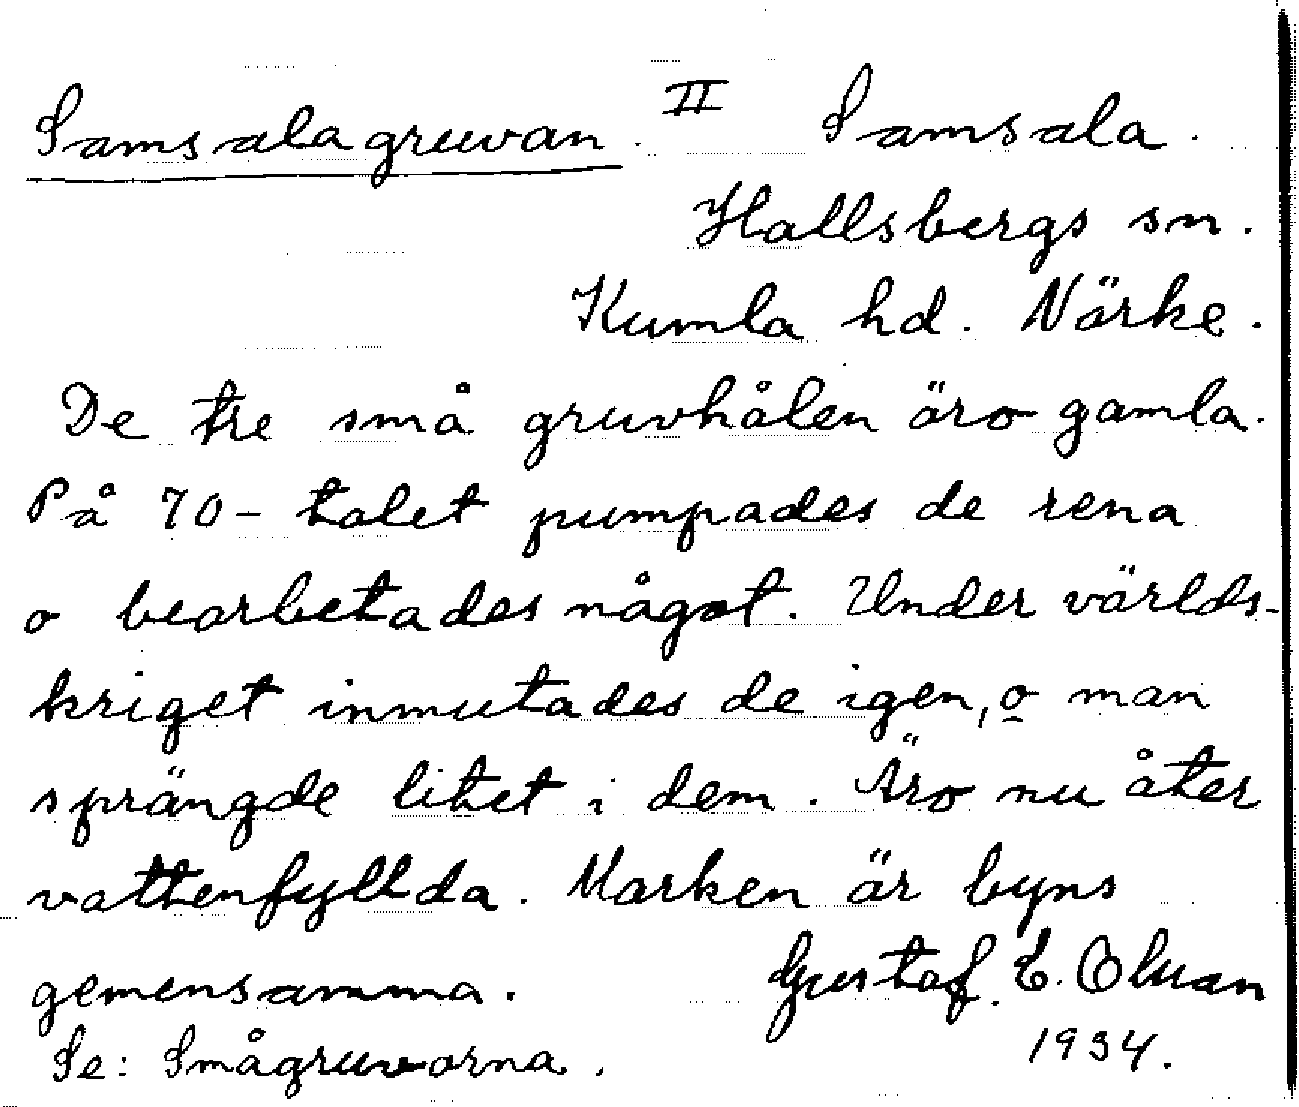 Samsalagruvan. II Samsala.
Hallsbergs sn.
Kumla hd. Närke.
De tre små gruvhålen äro gamla.
På 70-talet pumpades de rena
o bearbetades något. Under världs-
kriget inmutades de igen, o man
sprängde litet i dem. Äro nu åter
vattenfyllda. Marken är byns
gemensamma. Gustaf E. Olsson
Se: Smågruvorna. 1934.